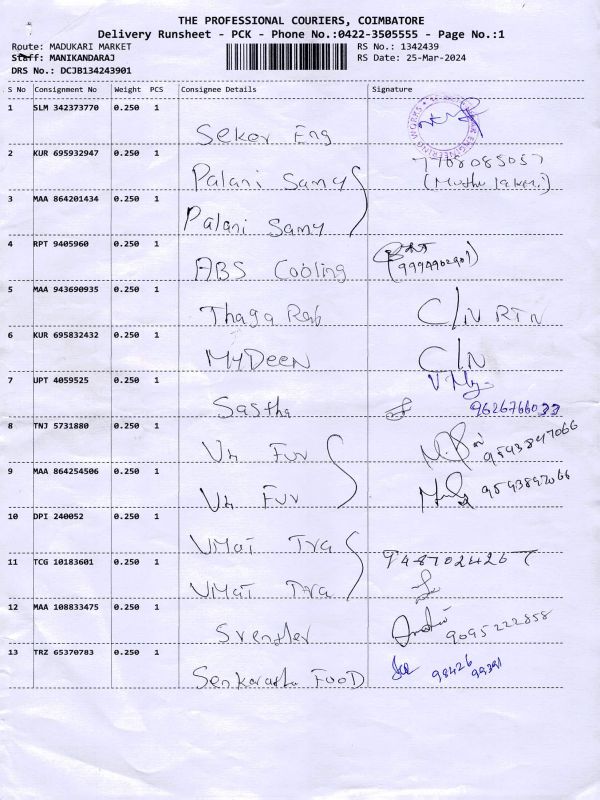 THE PROFESSIONAL COURIERS, COIMBATORE
Delivery Runsheet - PCK - Phone No.:0422-3505555 - Page No.:1
Route: MADUKARI MARKET
RS No.: 1342439
Staff: MANIKANDARAJ
RS Date: 25-Mar-2024
DRS No.: DCJB134243901
S No Consignment No Weight PCS Consignee Details Signature
1 SLM 342373770 0.250 1
Seker Eng
ENGINEERING WORKS
2 KUR 695932947 0.250 1
Palani Samy
7708085057
3 MAA 864201434 0.250 1
Palani Samy
4 RPT 9405960 0.250 1
ABS Cooling
5 MAA 943690935 0.250 1
Thaga C/N RTN
6 KUR 695832432 0.250 1
MyDeen C/N
7 UPT 4059525 0.250 1
Sastha 9626766033
8 TNJ 5731880 0.250 1
Un Fur 9593847066
9 MAA 864254506 0.250 1
Un Fur
10 DPI 240052 0.250 1
UMaT Tra
11 TCG 10183601 0.250 1
9487024267
UMaT Tra
12 MAA 108833475 0.250 1
9095222858
13 TRZ 65370783 0.250 1
FooD 98426 99391